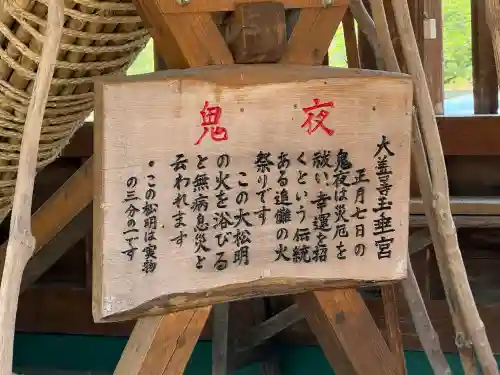 鬼夜
大善寺玉垂宮
正月七日の
鬼夜は災厄を
祓い幸運を招
くという伝統
ある追儺の火
祭りです
この大松明
の火を浴びる
と無病息災と
云われます
・この松明は実物
の三分の一です